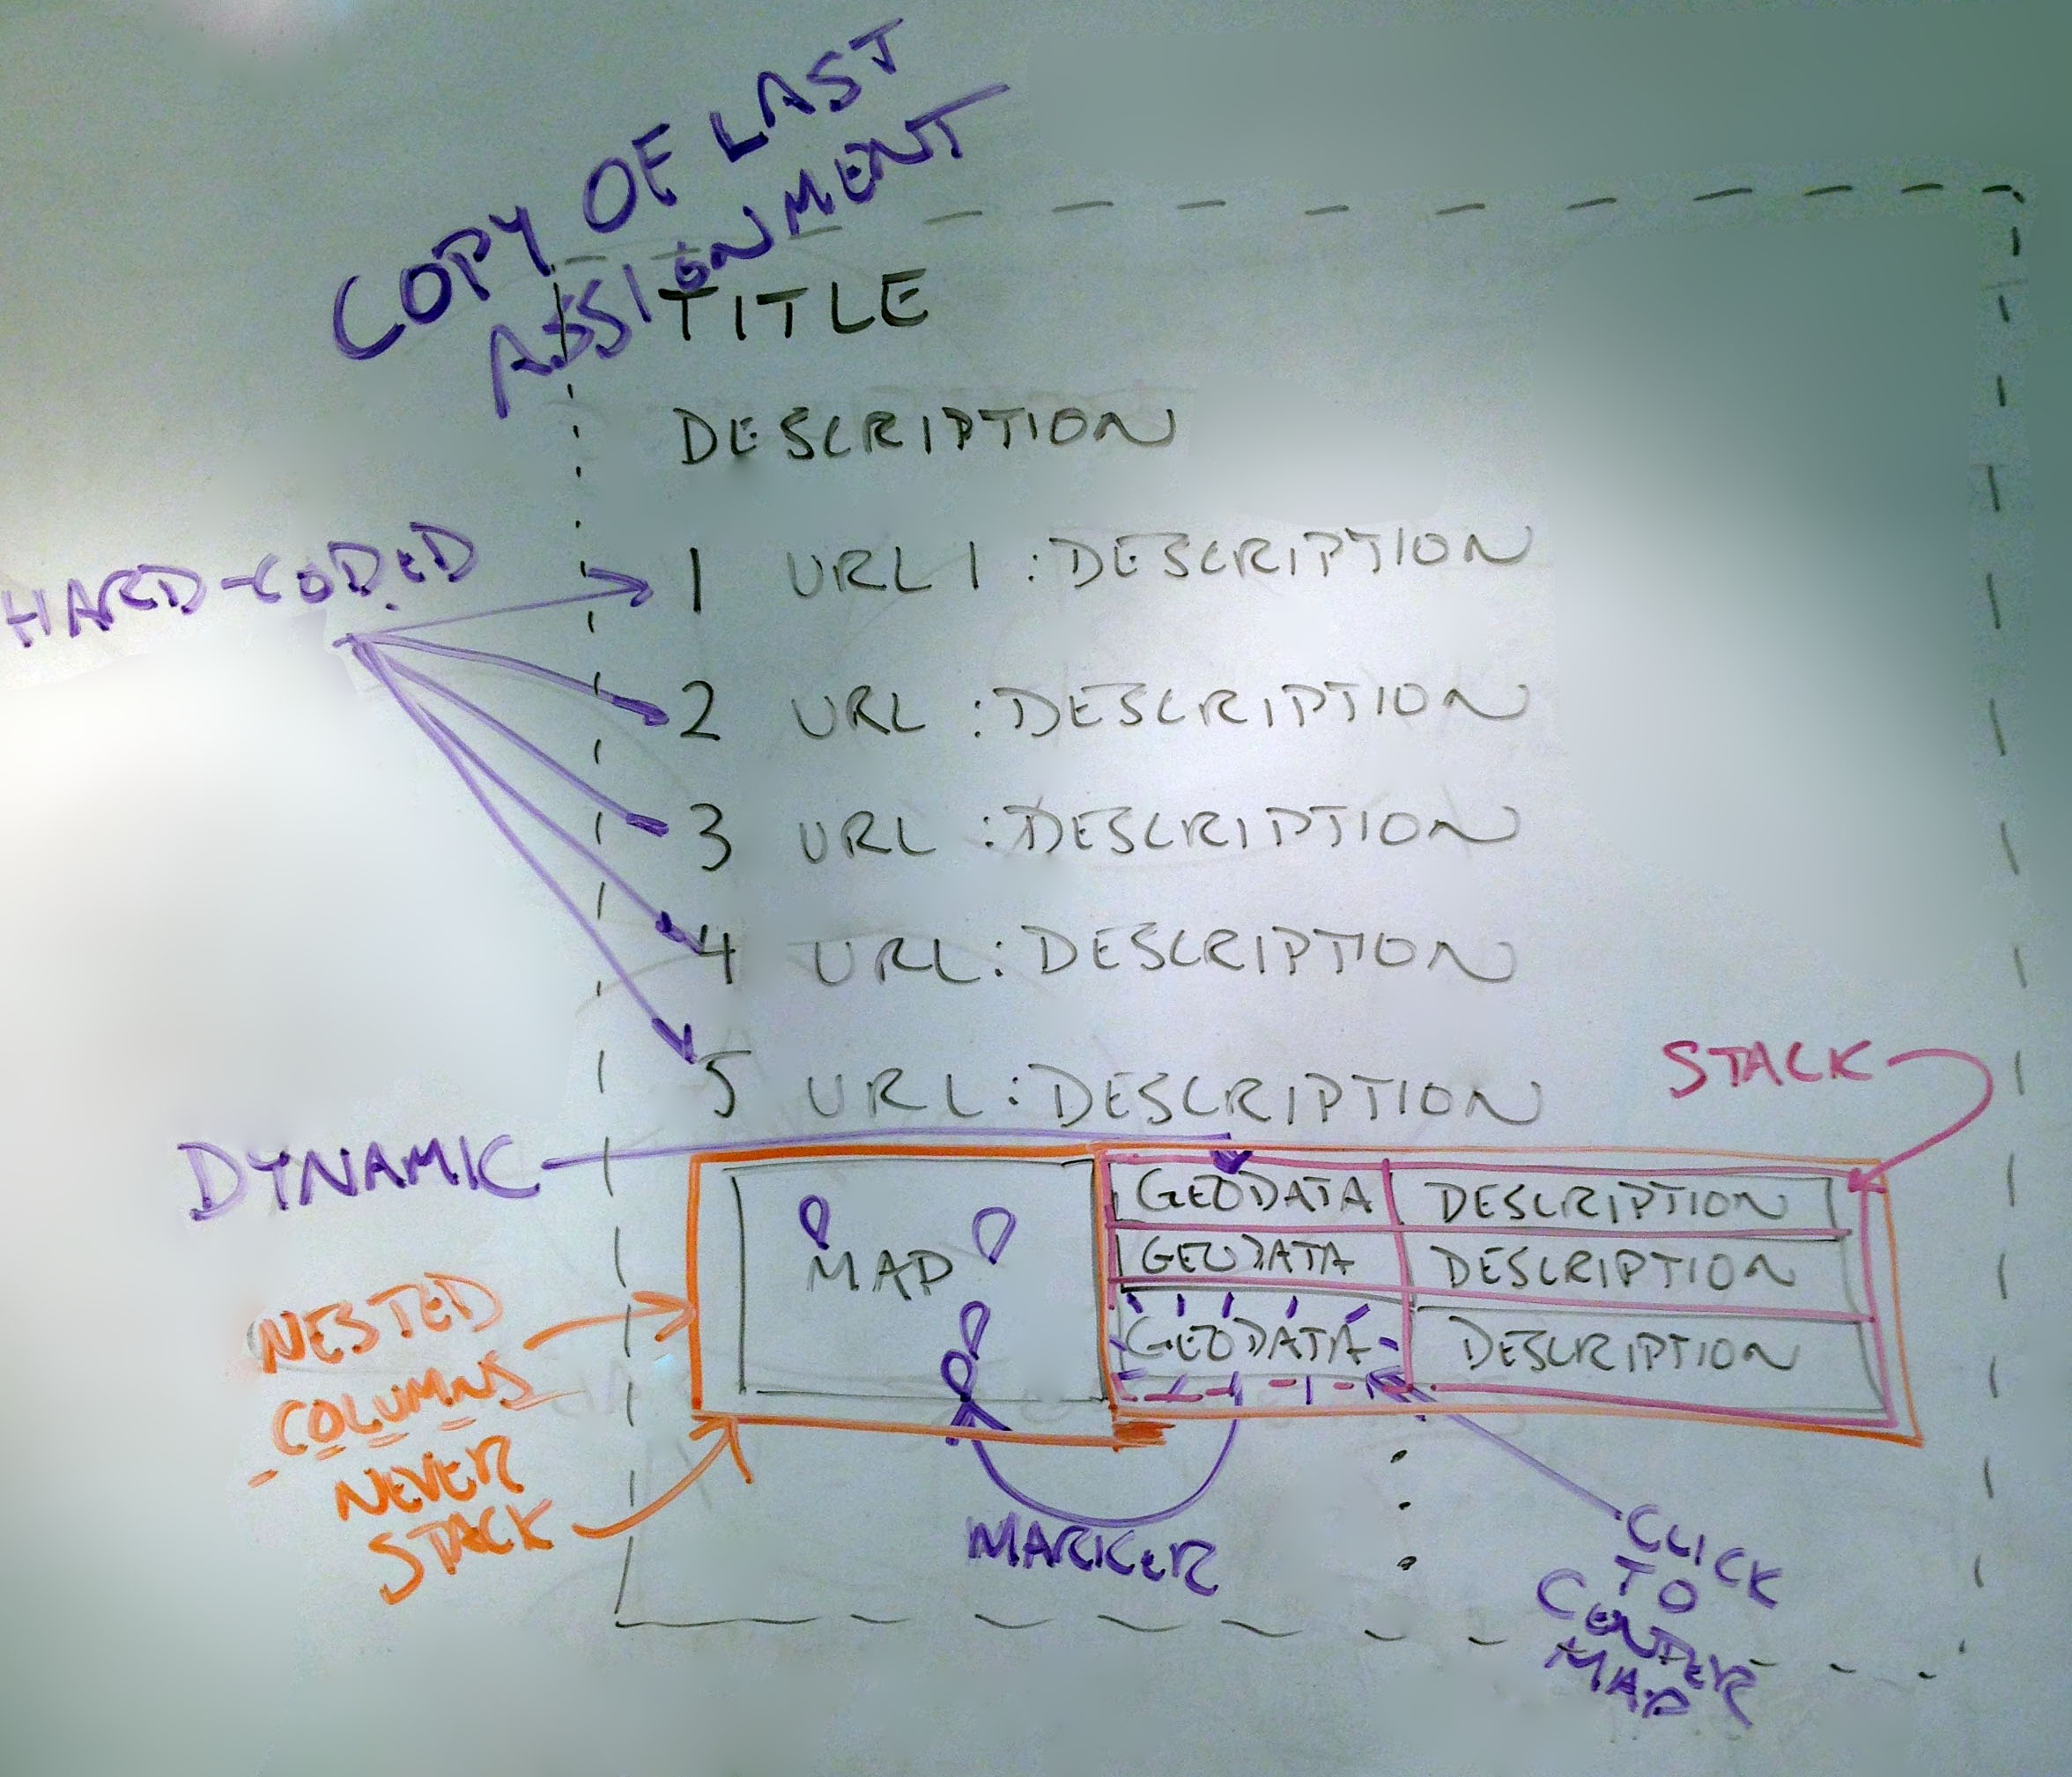 COPY OF LAST
ASSIGNMENT
TITLE
DESCRIPTION
HARD-CODED
1 URL 1 : DESCRIPTION
2 URL : DESCRIPTION
3 URL : DESCRIPTION
4 URL : DESCRIPTION
5 URL : DESCRIPTION
STACK
DYNAMIC
MAP
GEODATA DESCRIPTION
GEODATA DESCRIPTION
GEODATA DESCRIPTION
NESTED
COLUMNS
NEVER
STACK
MARKER
CLICK
TO
CENTER
MAP